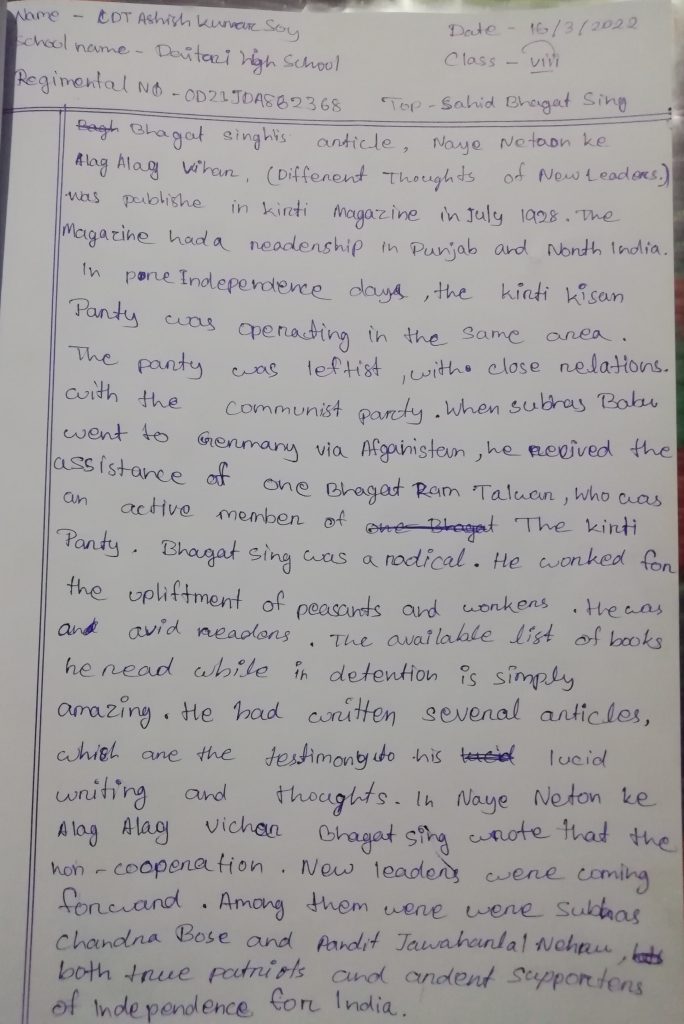 Name - CDT Ashish Kumar Soy
Date - 16/3/2022
School name - Daitari high School
Class - viii
Regimental No - OD21JDA5B2368
Top - Sahid Bhagat Sing
Bhagat singhis article, Naye Netaon ke
Alag Alag Vihar, (Different Thoughts of New Leaders.)
was publishe in kirti Magazine in July 1928. The
Magazine had a readership in Punjab and North India.
In pore Independence days, the kirti kisan
Party was operating in the same area.
The party was leftist, with close relations.
with the communist party. When subhas Babu
went to Germany via Afganistan, he recived the
assistance of one Bhagat Ram Taluar, who was
an active member of The kirti
Party. Bhagat sing was a radical. He worked for
the upliftment of peasants and workers. He was
and avid readers. The available list of books
he read while in detention is simply
amazing. He had written several articles,
which are the testimony to his lucid
writing and thoughts. In Naye Neton ke
Alag Alag vichar Bhagat sing wrote that the
non-cooperation. New leaders were coming
forward. Among them were were Subhas
Chandra Bose and Pandit Jawaharlal Nehru,
both true patriots and ardent supporters
of Independence for India.